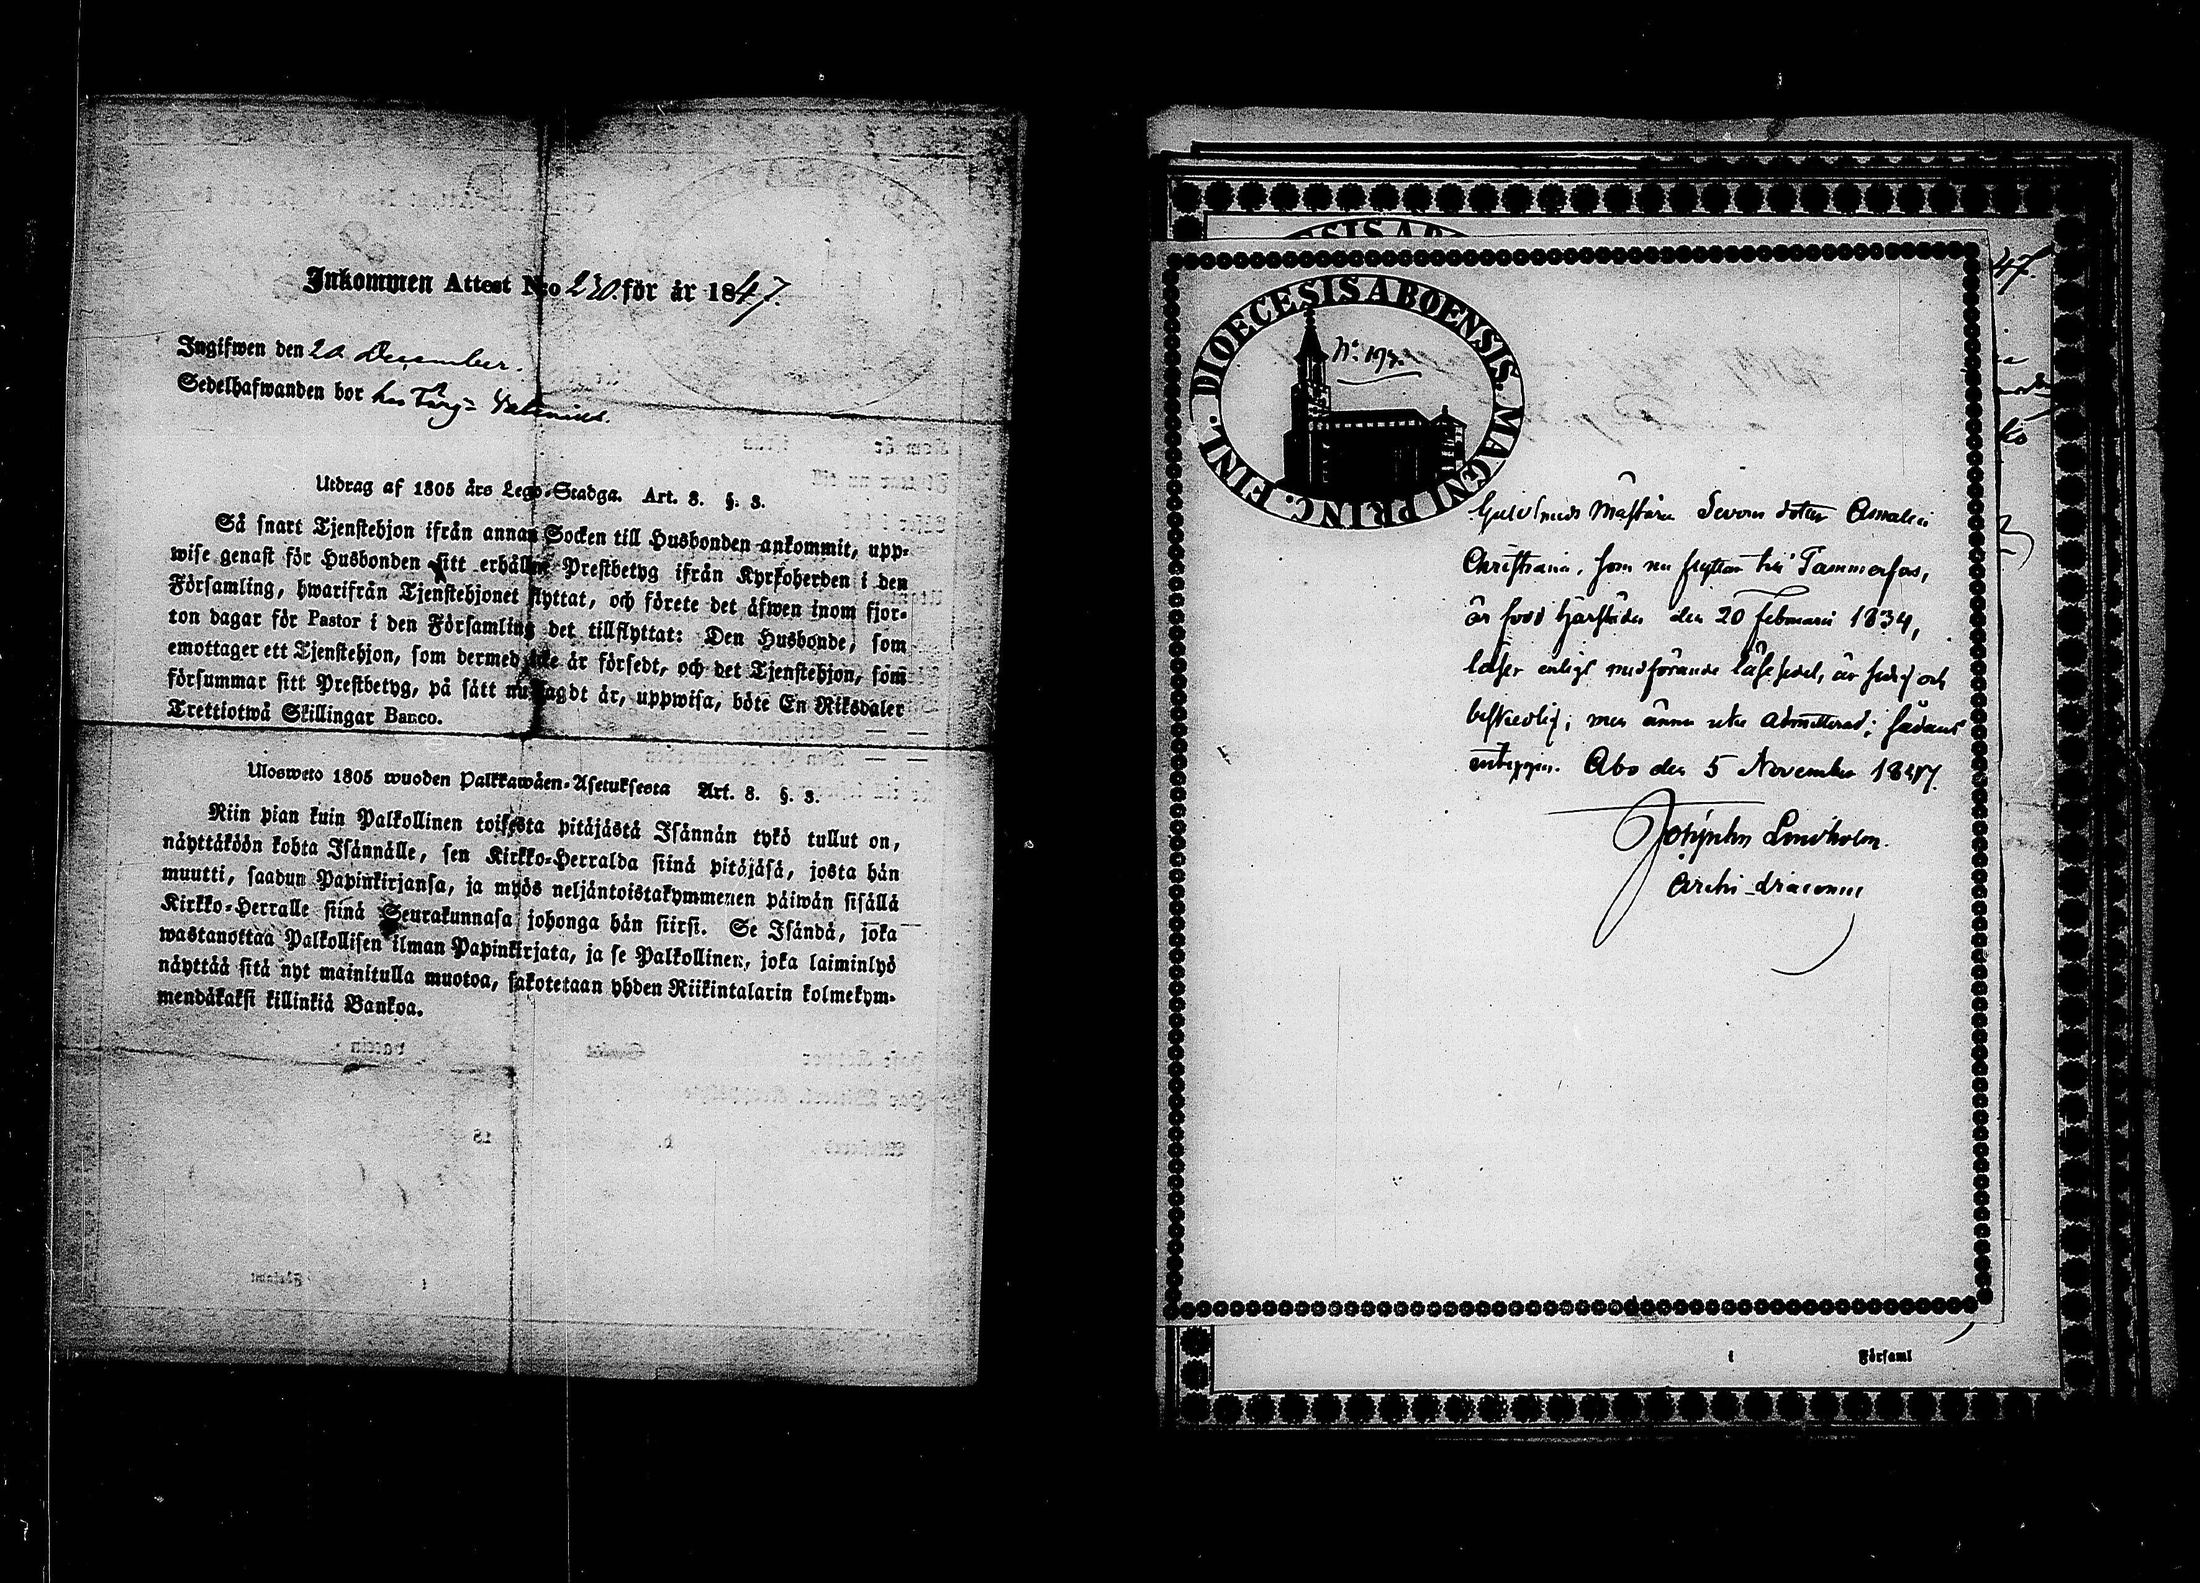 Inkommen Attest N:o 230. för år 1847.
Ingifwen den 20 December.
Sedelhafwanden bor hos
Utdrag af 1805 års Lego-Stadga. Art. 8. §. 3.
Så snart Tjenstehjon ifrån annan Socken till Husbonden ankommit, upp-
wise genast för Husbonden sitt erhållne Prestbetyg ifrån Kyrkoherden i den
Församling, hwarifrån Tjenstehjonet flyttat, och förete det äfwen inom fjor-
ton dagar för Pastor i den Församling det tillflyttat: Den Husbonde, som
emottager ett Tjenstehjon, som dermed icke är försedt, och det Tjenstehjon, som
försummar sitt Prestbetyg, på sätt nu sagdt är, uppwisa, böte En Riksdaler
Trettiotwå Skillingar Banco.
Ulosweto 1805 wuoden Palkkawäen-Asetuksesta Art. 8. §. 3.
Niin pian kuin Palkollinen toisesta pitäjästä Isännän tykö tullut on,
näyttäköön kohta Isännälle, sen Kirkko-Herralda siinä pitäjäsä, josta hän
muutti, saadun Papinkirjansa, ja myös neljäntoistakymmenen päiwän sisällä
Kirkko-Herralle siinä Seurakunnasa johonga hän siirsi. Se Isändä, joka
wastanottaa Palkollisen ilman Papinkirjata, ja se Palkollinen, joka laiminlyö
näyttää sitä nyt mainitulla muotoa, sakotetaan yhden Riikintalarin kolmekym-
mendäkaksi killinkiä Bankoa.
47.
DIOECESIS ABOENSIS. MAGNI PRINC. FINL.
N:o 197.
Guldsmeds Mästaren dotter Amalia
Christiana, som nu flyttar till Tammerfors,
är född härstädes den 20 Februarii 1834,
läser enligt medförande läsesedel, är sedig och
beskedlig; men ännu icke admitterad; sådant
intygas. Åbo den 5 November 1847.
Lindholm.
Archi-diaconus
i Församl